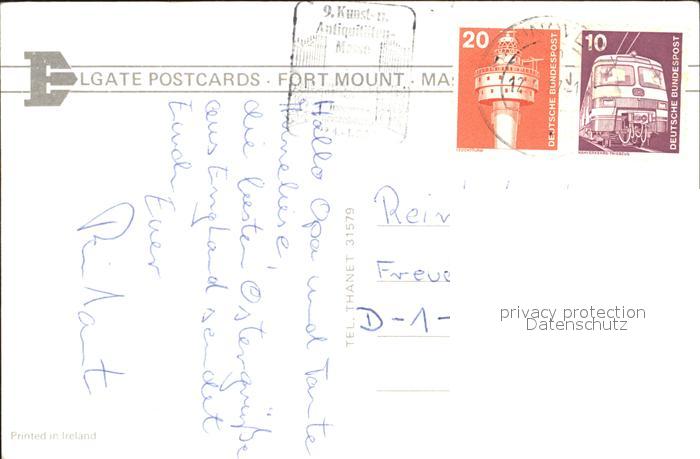 9. Kunst- u.
Antiquitäten-
Messe
20
DEUTSCHE BUNDESPOST
LEUCHTTURM
10
DEUTSCHE BUNDESPOST
NAHVERKEHRS-TRIEBZUG
ELGATE POSTCARDS · FORT MOUNT · MA
Hallo Opa und Tante
Anneliese,
die besten Ostergrüße
aus England sendet
Euch
Euer
TEL. THANET 31579
D-1-
privacy protection
Datenschutz
Printed in Ireland